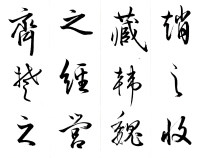 趙之收
藏韓魏
之經營
齊楚之